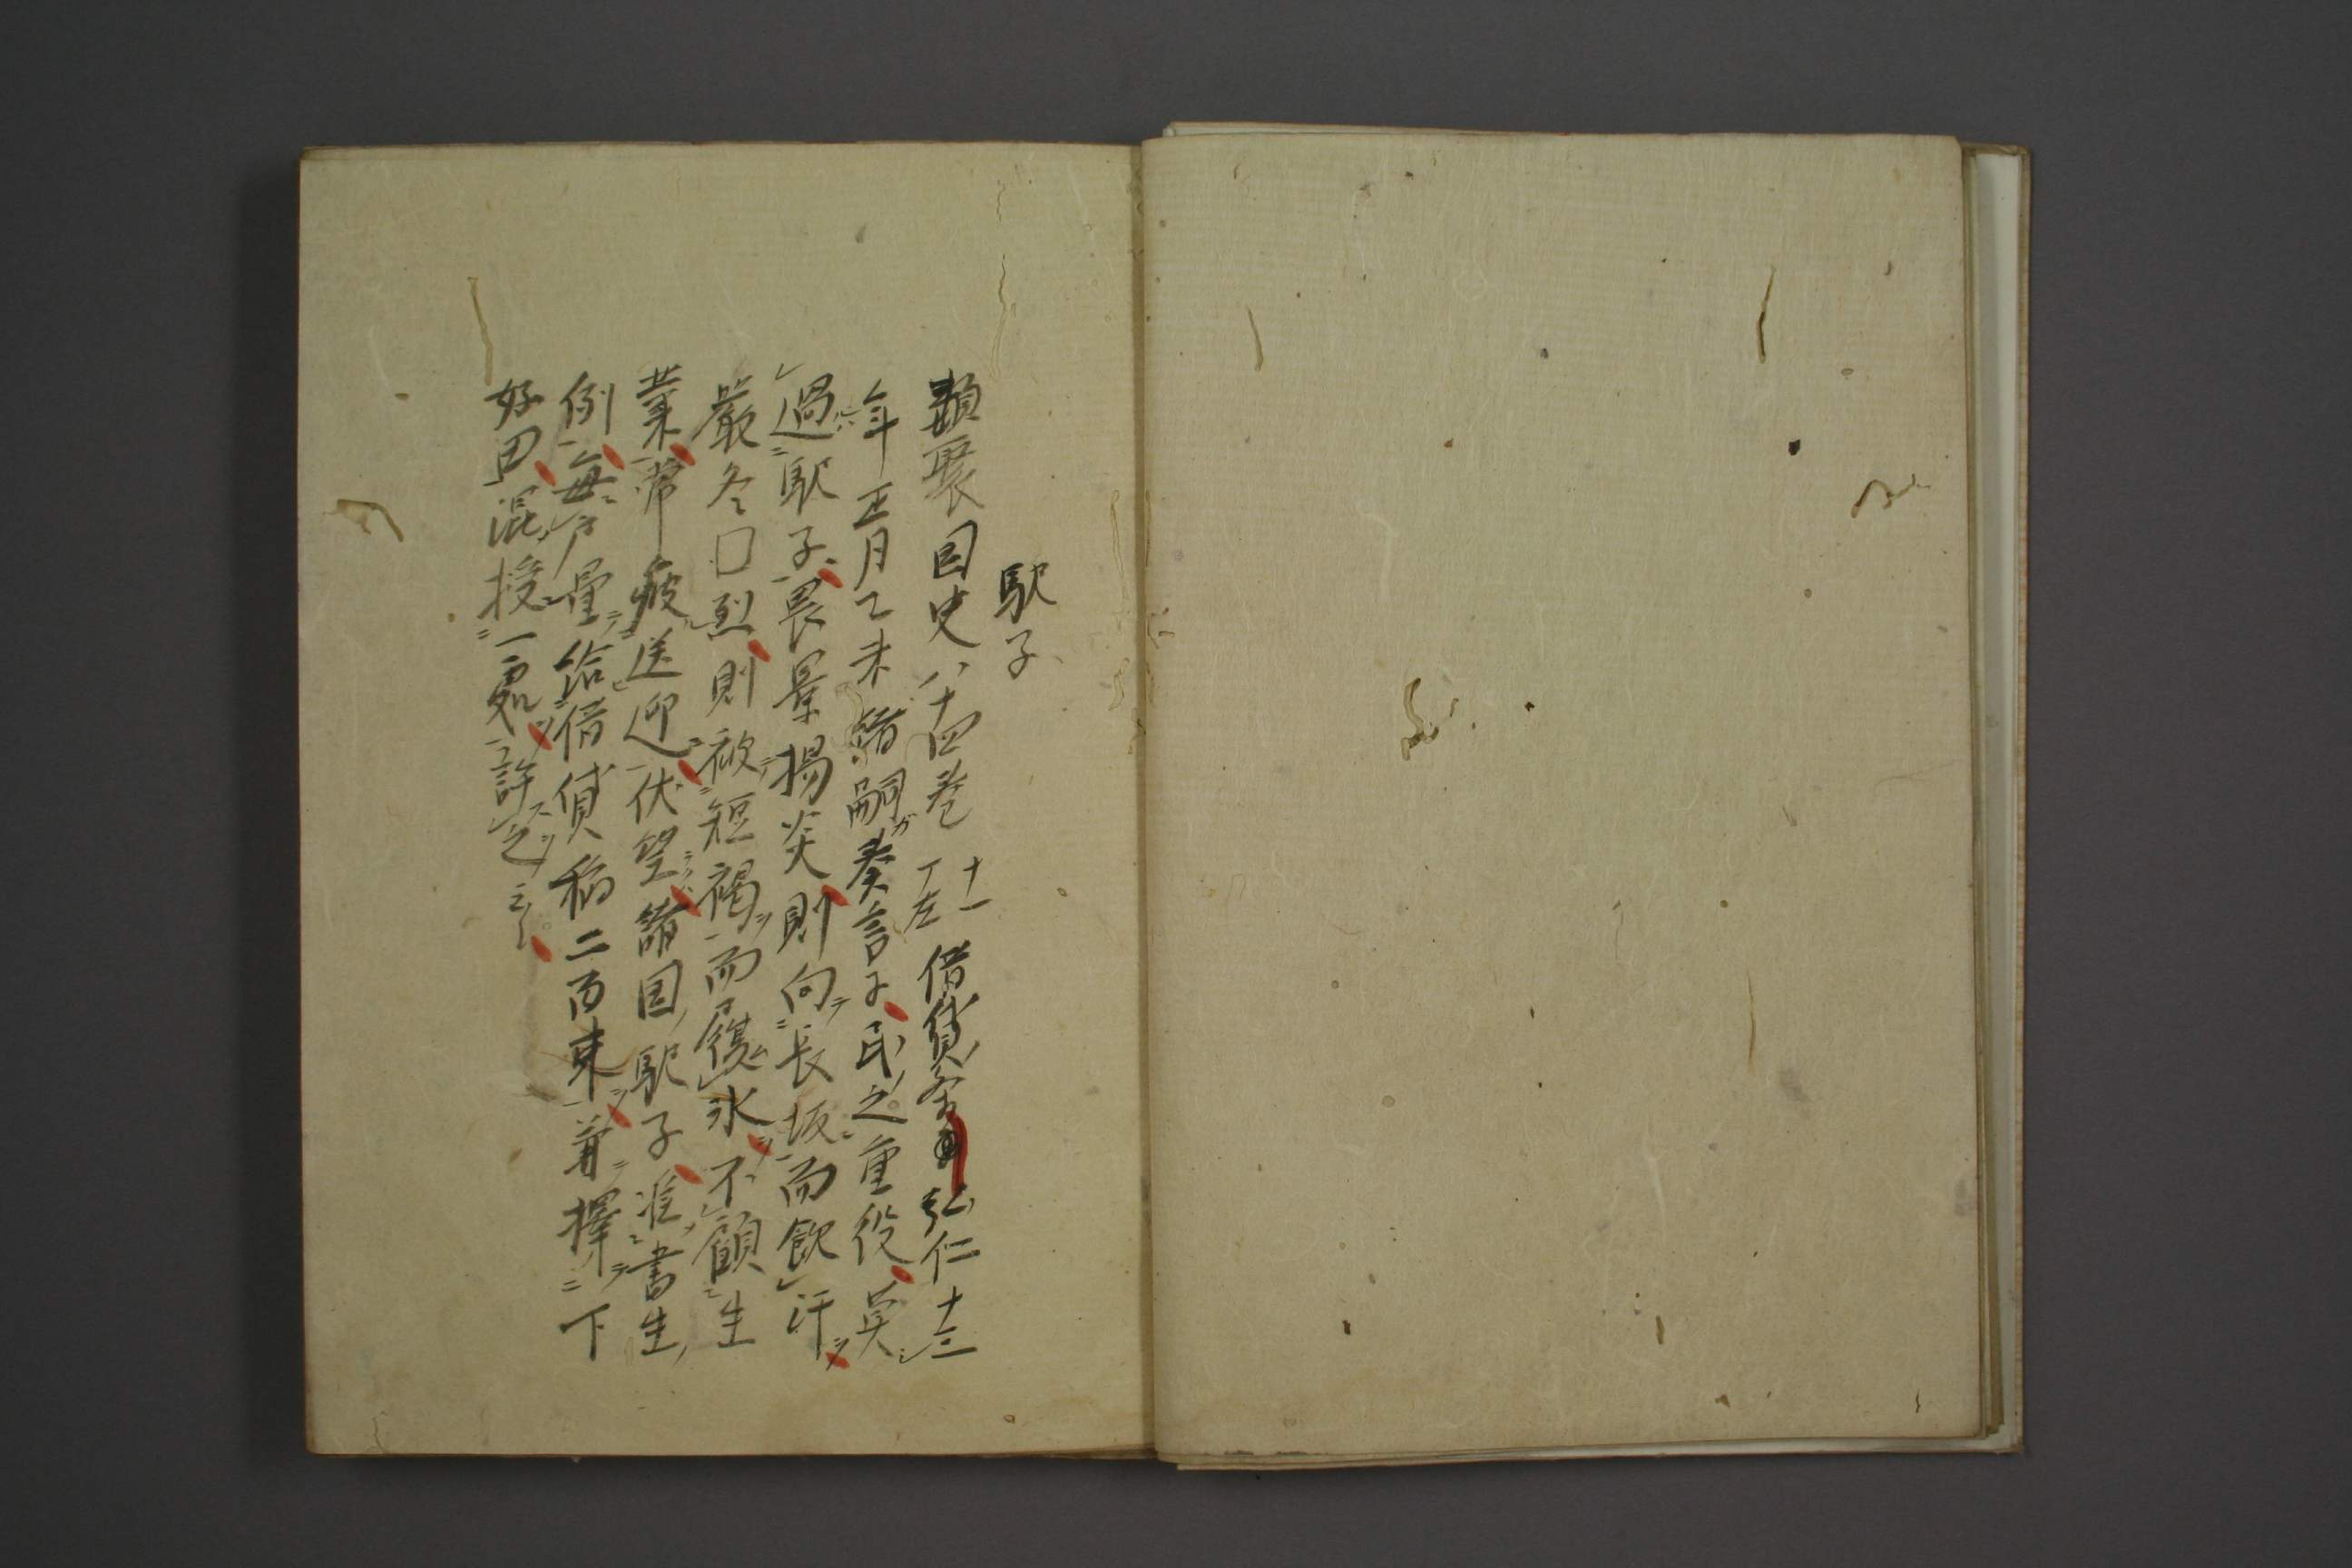 駅子
類聚国史八十四巻 十一丁左 借貸条 弘仁十三
年正月乙未緒嗣ガ奏言子民之重役莫
過駅子畏景揚炎則向長坂而飲汗
厳冬口烈則被短褐而履氷不顧生
業常疲送迎伏望諸国駅子准書生
例毎戸量給借貸稲二百束并択下
好田混授一処許之云々